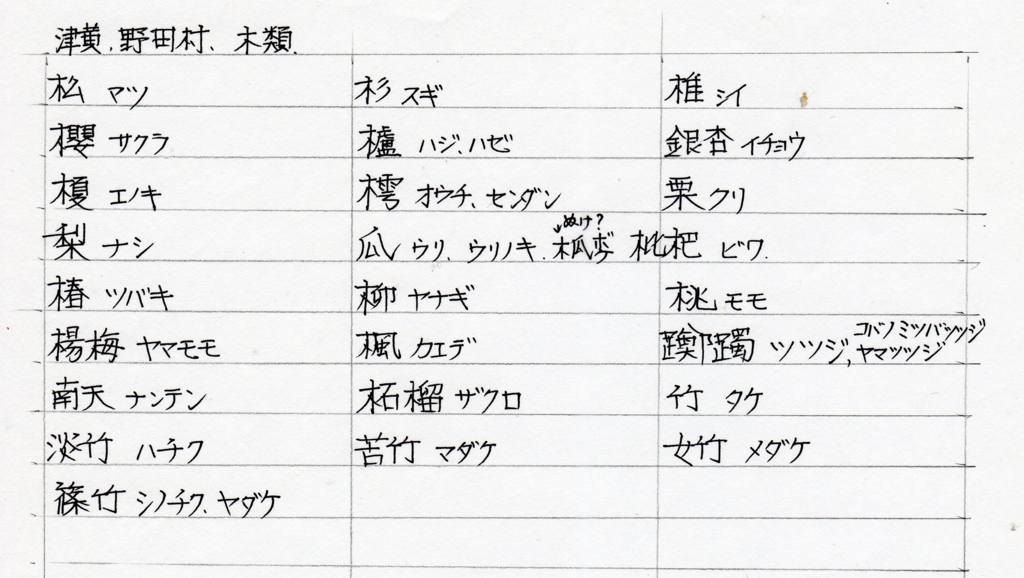 津黄、野田村、木類.
松 マツ 杉 スギ 椎 シイ
櫻 サクラ 櫨 ハジ、ハゼ 銀杏 イチョウ
榎 エノキ 樗 オウチ、センダン 栗 クリ
ぬけ?
梨 ナシ 瓜 ウリ、ウリノキ. 枇杷 ビワ.
椿 ツバキ 柳 ヤナギ 桃 モモ
コバノミツバツツジ
楊梅 ヤマモモ 楓 カエデ 躑躅 ツツジ, ヤマツツジ
南天 ナンテン 柘榴 ザクロ 竹 タケ
淡竹 ハチク 苦竹 マダケ 女竹 メダケ
篠竹 シノチク、ヤダケ